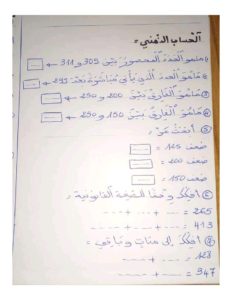 الحساب الذهني :
① ماهو العدد المحصور بين 305 و 311 ←
② ماهو العدد الذي يأتي مباشرة بعد 295 ←
③ ماهو الفارق بين 200 و 250 ←
④ ماهو الفارق بين 150 و 250 ←
⑤ أبحث عن :
ضعف 125 =
ضعف 200 =
ضعف 150 =
⑥ أفكك وفقا للصيغة القانونية :
265 = --- + --- + ---
413 = --- + --- + ---
⑦ أفكك إلى مئات وباقي :
128 = --- + ---
347 = --- + ---